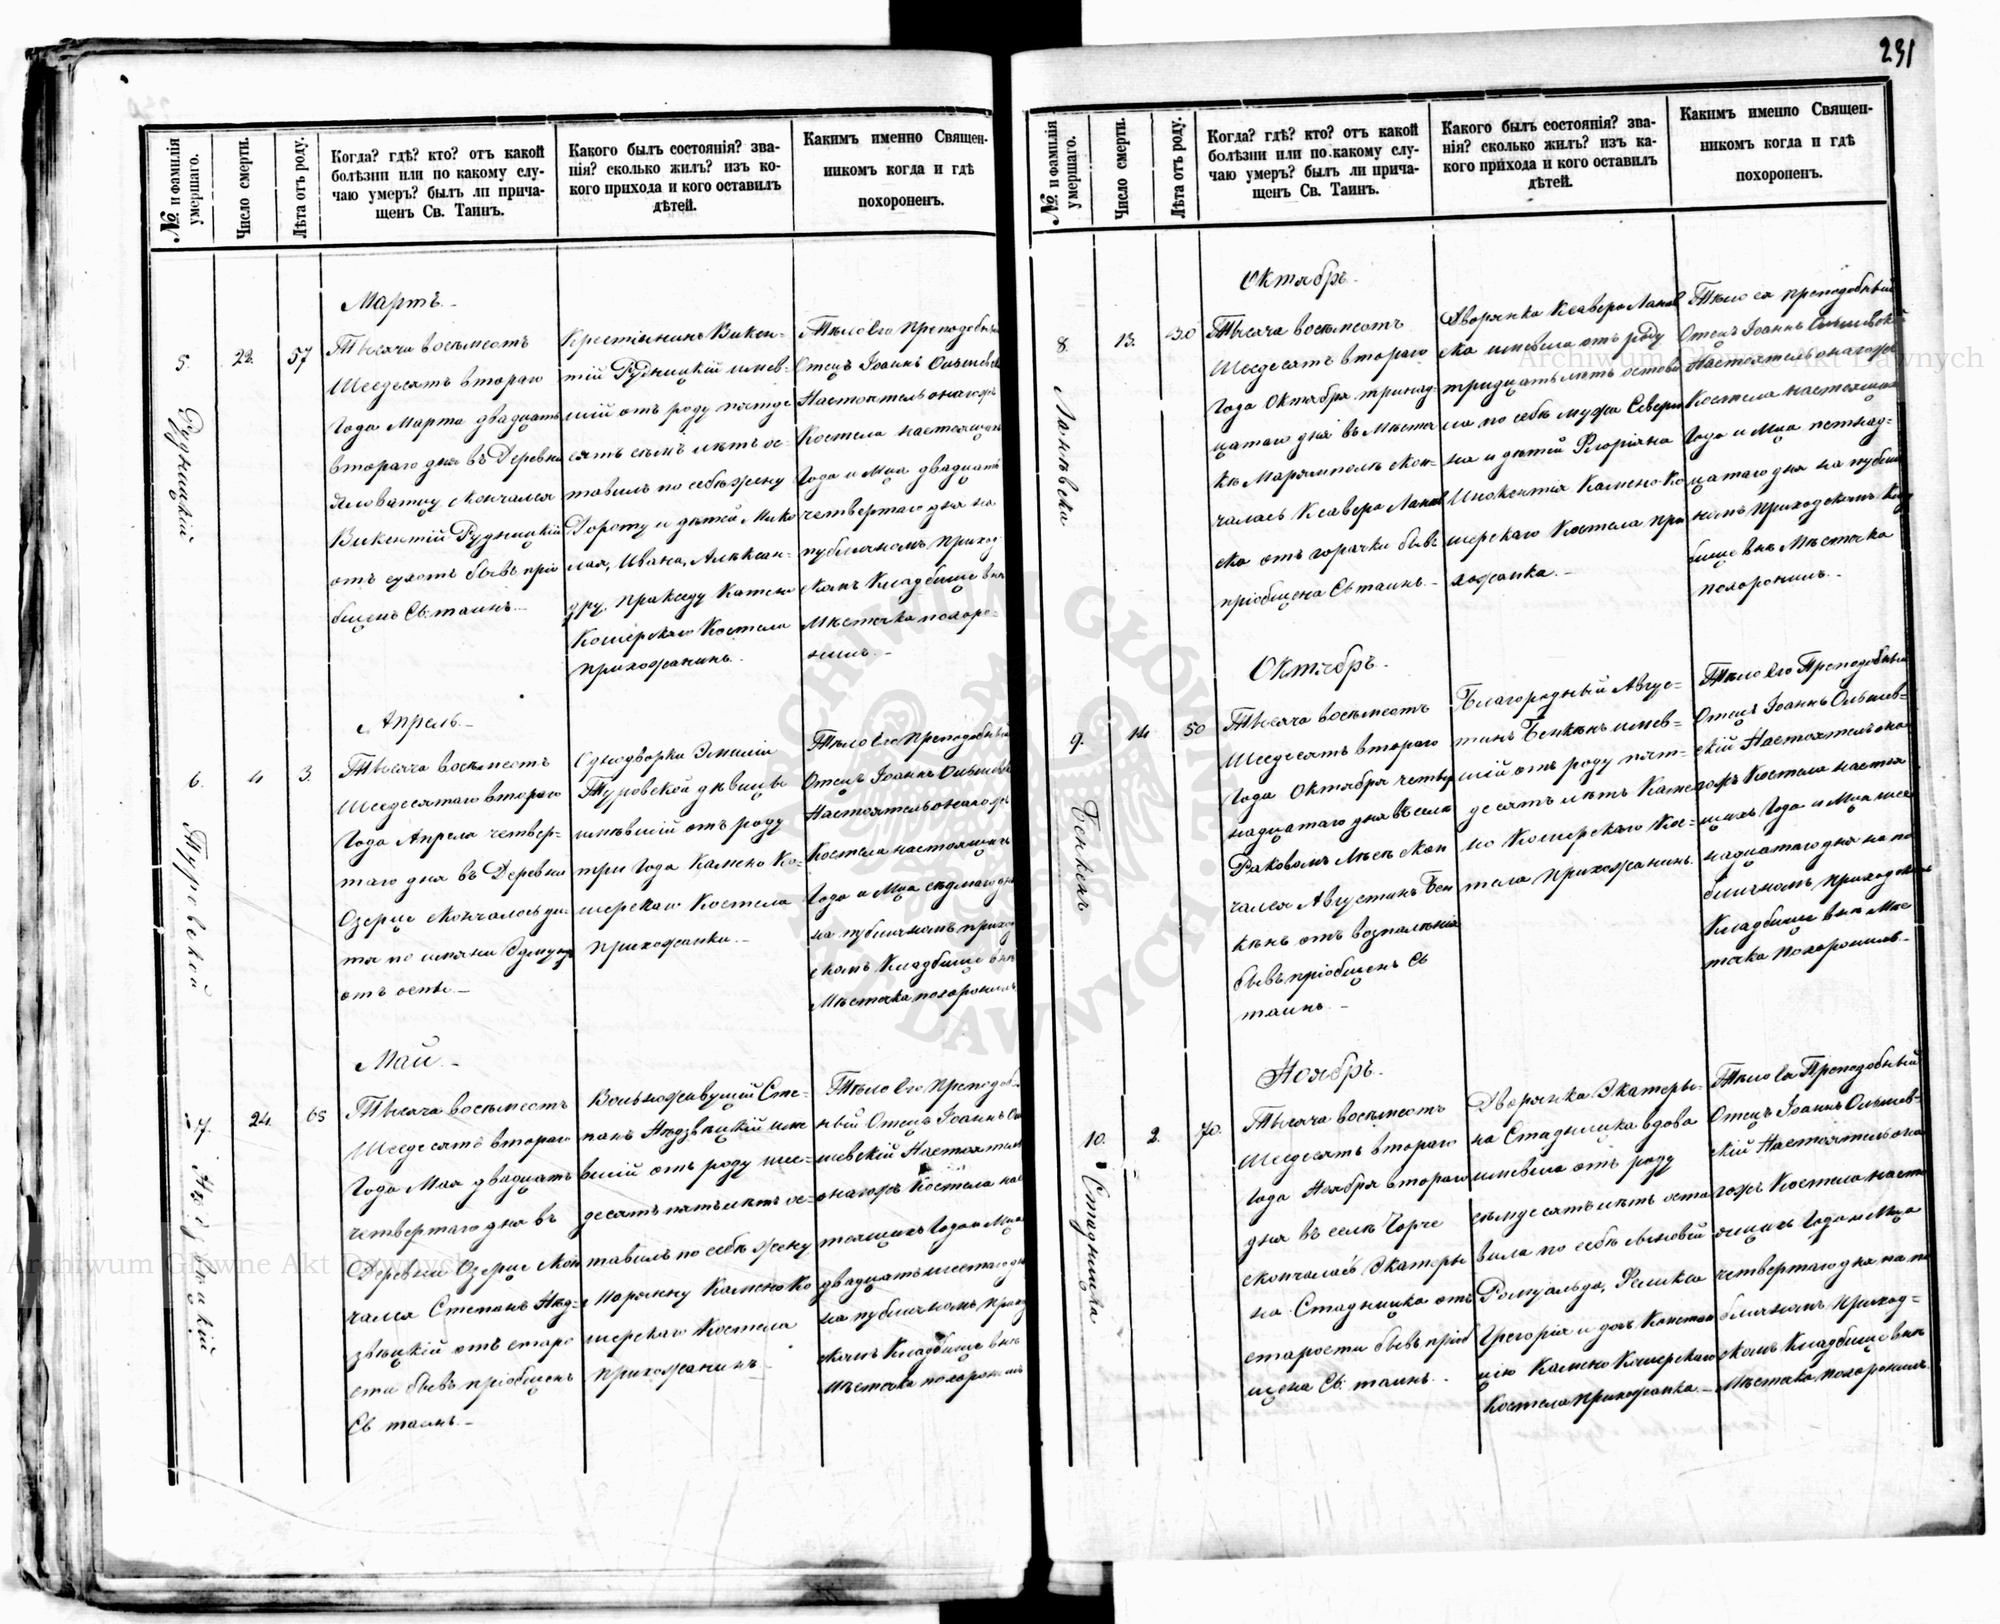 231
№ и фамилія умершаго.
Число смерти.
Лѣта отъ роду.
Когда? гдѣ? кто? отъ какой
болѣзни или по какому слу-
чаю умеръ? былъ ли прича-
щенъ Св. Таинъ.
Какого былъ состоянія? зва-
нія? сколько жилъ? изъ ко-
кого прихода и кого оставилъ
дѣтей.
Какимъ именно Священ-
никомъ когда и гдѣ
похороненъ.
5.
Рудницкій
22.
57
Мартъ.
Тысяча восемьсотъ
Шесдесятъ втораго
Года Марта двадцать
втораго дня въ Деревни
Яловатцу скончался
Викентій Рудницкій
отъ сухотъ бывъ прі
бщенъ Св. таинъ.
Крестіянинъ Викен-
тій Рудницкій имев-
шій отъ роду пятде
сятъ семъ лѣтъ ос-
тавилъ по себѣ жену
Дороту и дѣтей Мико
лая, Ивана, Алѣксан-
дру, Праксду Камено
Кошерскаго Костела
прихожанинъ.
Тѣло Его Преподобный
Отецъ Іоаннъ Ольшевск
Настоятель онагожъ
Костела настоящихъ
Года и Мца двадцать
четвертаго дня на
публичномъ приход
скомъ Кладбище внѣ
Мѣстечка похоро-
нилъ.
6.
Туровской
4
3.
Апрель.
Тысяча восемьсотъ
Шесдесятаго втораго
Года Апреля четвер-
таго дня въ Деревни
Озерце скончалось ди-
тя по имяни Эдмунд
отъ оспы.
Однодворки Эмиліи
Туровской дѣвицы
имѣвшій отъ роду
три Года Камено Ко-
шерскаго Костела
прихожанки.
Тѣло Его Преподобный
Отецъ Іоаннъ Ольшевск
Настоятель онагожъ
Костела настоящихъ
Года и Мца седмаго дня
на публичномъ приход
скомъ Кладбище внѣ
Мѣстечка похоронилъ
7.
Нѣдзвѣцкій
24.
65
Май.
Тысяча восемьсотъ
Шесдесятъ втораго
Года Мая двадцать
четвертаго дня въ
Деревни Озерце скон
чался Степанъ Нѣд-
звѣцкій отъ старо
сти бывъ пріобщенъ
Св таинъ.
Вольноживущій Сте-
панъ Нѣдзвѣцкій име
вшій отъ роду шес-
десятъ пять лѣтъ ос-
тавилъ по себѣ жену
Марянну Камено Ко
шерскаго Костела
прихожанинъ
Тѣло Его Преподоб-
ный Отецъ Іоаннъ Ол
шевскій Настоятель
онагожъ Костела нас
тоящихъ Года и Мца
двадцать шестаго дня
на публичномъ приход
скомъ Кладбище внѣ
Мѣстечка похоронилъ
№ и фамилія умершаго.
Число смерти.
Лѣта отъ роду.
Когда? гдѣ? кто? отъ какой
болѣзни или по какому слу-
чаю умеръ? былъ ли прича-
щенъ Св. Таинъ.
Какого былъ состоянія? зва-
нія? сколько жилъ? изъ ка-
кого прихода и кого оставилъ
дѣтей.
Какимъ именно Священ-
никомъ когда и гдѣ
похороненъ.
8.
Ланѣвска
13.
30
Октябрь.
Тысяча восемьсотъ
Шесдесятъ втораго
Года Октября тринад-
цатаго дня въ Мѣстеч
кѣ Марямполѣ скон-
чалась Ксавера Ланѣв
ска отъ горачки бывъ
пріобщена Св таинъ.
Дворянка Ксавера Ланѣв
ска имевша отъ роду
тридцать лѣтъ остави
ла по себѣ мужа Севери
на и дѣтей Флоріяна
Инокентія Камено-Ко
шерскаго Костела при
хожанка.
Тѣло ея преподобный
Отецъ Іоаннъ Ольшевскій
Настоятель онагожъ
Костела настоящихъ
Года и Мца петнад-
цатаго дня на публич
номъ приходскомъ Клад
бище внѣ Мѣстечка
похоронилъ.
9.
Бенкенъ
14
50
Октябрь.
Тысяча восемьсотъ
Шесдесятъ втораго
Года Октября четыр
надцатаго дня въ селѣ
Раковомъ Лѣсѣ скон
чался Августинъ Бен
кѣнъ отъ возпаленія
бывъ пріобщенъ Св
таинъ.
Благородный Авгус-
тинъ Бенкѣнъ имев-
шій отъ роду пят-
десятъ лѣтъ Каме
но Кошерскаго Кос-
тела прихожанинъ.
Тѣло Его Преподобный
Отецъ Іоаннъ Ольшев-
скій Настоятель она
гожъ Костела настоя
щихъ Года и Мца шес
надцатаго дня на пу
бличномъ приходскомъ
Кладбище внѣ Мѣс
течка похоронилъ.
10.
Стадницка
2.
70.
Ноябрь.
Тысяча восемьсотъ
Шесдесятъ втораго
Года Ноября втораго
дня въ селѣ Черче
скончалась Экатери
на Стадницка отъ
старости бывъ пріоб
щена Св. таинъ.
Дворянка Экатери-
на Стадницка вдова
имевша отъ роду
семдесятъ лѣтъ оста
вила по себѣ сыновей
Ромуальда, Феликса
Грегорія и дочь Констан
цію Камено Кошерскаго
Костела прихожанка.
Тѣло Ея Преподобный
Отецъ Іоаннъ Ольшев-
скій Настоятель она
гожъ Костела насто
ящихъ Года и Мца
четвертаго дня на пу
бличномъ приход-
скомъ Кладбище внѣ
Мѣстечка похоронилъ.
Archiwum Główne Akt Dawnych
Archiwum Główne Akt Dawnych
ARCHIWUM GŁÓWNE AKT DAWNYCH